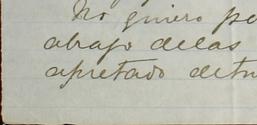 No quiero pe
abajo delas
apretado detu